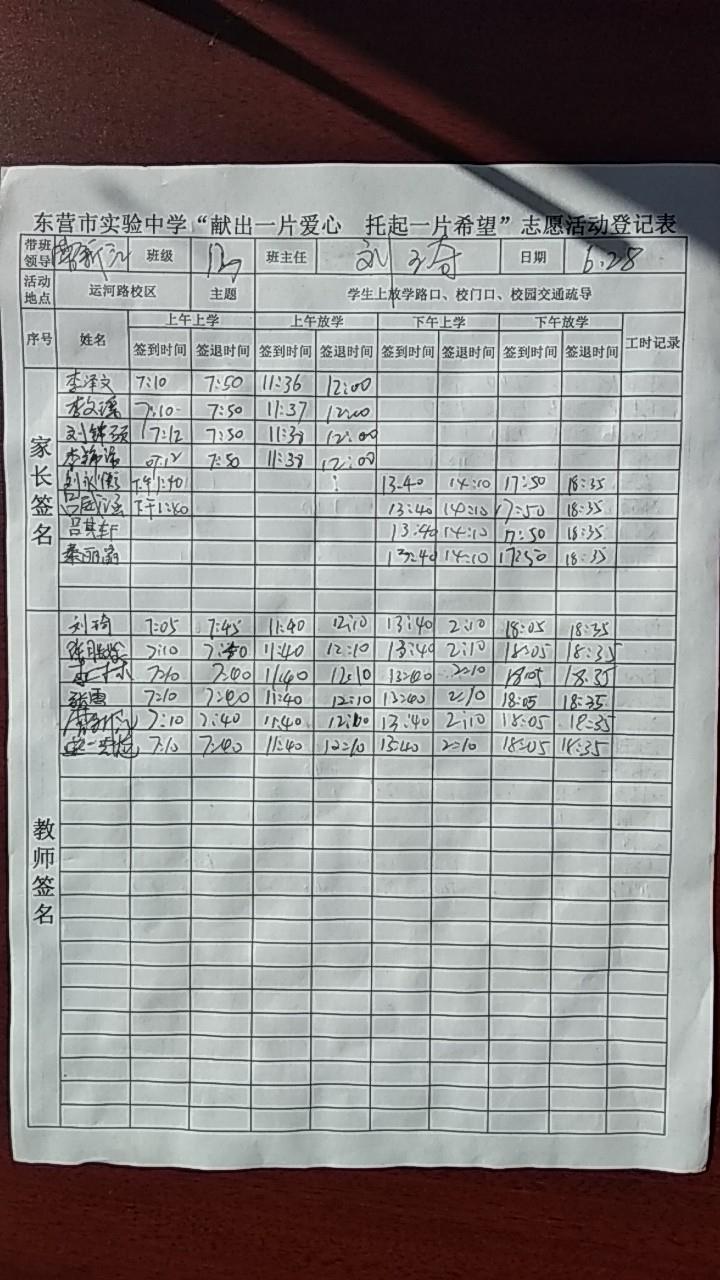 东营市实验中学“献出一片爱心 托起一片希望”志愿活动登记表
带班领导 班级 班主任 刘 日期 6.28
活动地点 运河路校区 主题 学生上放学路口、校门口、校园交通疏导
序号 姓名 上午上学 上午放学 下午上学 下午放学 工时记录
签到时间 签退时间 签到时间 签退时间 签到时间 签退时间 签到时间 签退时间
家长签名
李泽文 7:10 7:50 11:36 12:00
李文瑶 7:10 7:50 11:37 12:00
7:12 7:50 11:38 12:00
7:50 11:38 12:00
下午1:40 13:40 14:10 17:50 18:35
下午1:40 13:40 14:10 17:50 18:35
吕其轩 13:40 14:10 17:50 18:35
秦丽 13:40 14:10 17:50 18:35
教师签名
刘琦 7:05 7:45 11:40 12:10 13:40 2:10 18:05 18:35
7:10 7:40 11:40 12:10 13:40 2:10 18:05 18:35
7:10 7:40 11:40 12:10 13:40 2:10 18:05 18:35
张雷 7:10 7:40 11:40 12:10 13:40 2:10 18:05 18:35
7:10 7:40 11:40 12:10 13:40 2:10 18:05 18:35
7:10 7:40 11:40 12:10 13:40 2:10 18:05 18:35